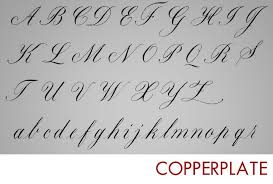 A B C D E F G H I J
K L M N O P Q R S
T U V W X Y Z
a b c d e f g h i j k l m n o p q r
COPPERPLATE